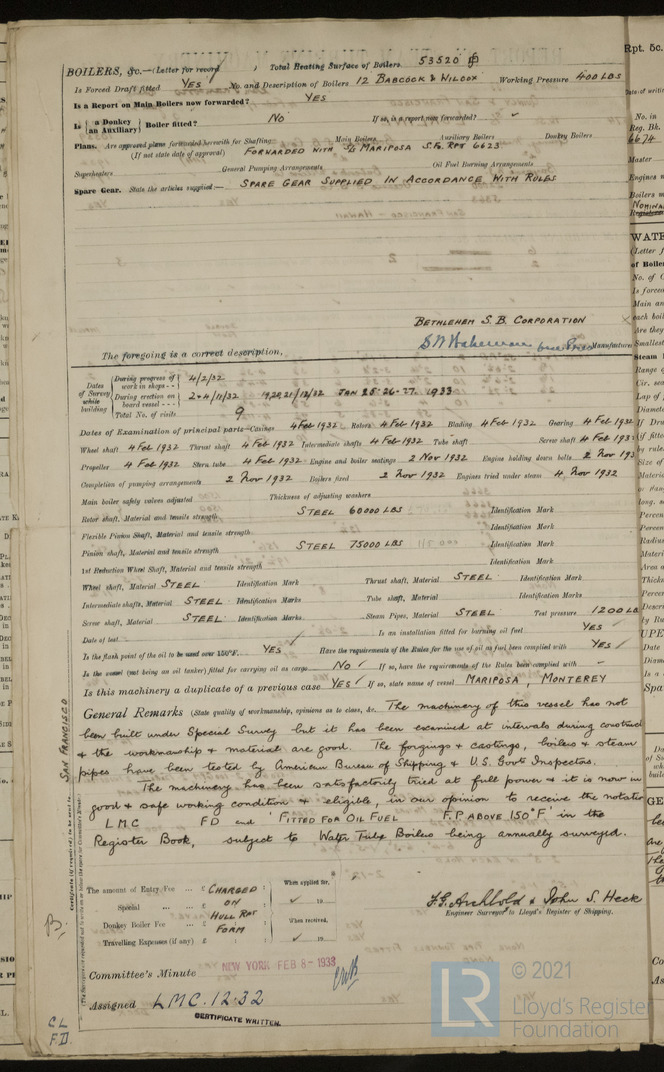 BOILERS, &c.—(Letter for record ) Total Heating Surface of Boilers 53520
Is Forced Draft fitted YES No. and Description of Boilers 12 BABCOCK & WILCOX Working Pressure 400 LBS
Is a Report on Main Boilers now forwarded? YES
Is {a Donkey / an Auxiliary} Boiler fitted? NO If so, is a report now forwarded?
Plans. Are approved plans forwarded herewith for Shafting Main Boilers Auxiliary Boilers Donkey Boilers
(If not state date of approval) FORWARDED WITH S/S MARIPOSA S.F. RPT 6623
Superheaters General Pumping Arrangements Oil Fuel Burning Arrangements
Spare Gear. State the articles supplied:— SPARE GEAR SUPPLIED IN ACCORDANCE WITH RULES
BETHLEHEM S.B. CORPORATION
The foregoing is a correct description, Manufacturer
Dates of Survey while building
During progress of work in shops - - 4/2/32
During erection on board vessel - - - 2+4/11/32 19,28,21/12/32 JAN 25-26-27. 1933
Total No. of visits 9
Dates of Examination of principal parts—Casings 4 Feb 1932 Rotors 4 Feb 1932 Blading 4 Feb 1932 Gearing 4 Feb 1932
Wheel shaft 4 Feb 1932 Thrust shaft 4 Feb 1932 Intermediate shafts 4 Feb 1932 Tube shaft Screw shaft 4 Feb 193
Propeller 4 Feb 1932 Stern tube 4 Feb 1932 Engine and boiler seatings 2 Nov 1932 Engine holding down bolts 2 Nov 193
Completion of pumping arrangements 2 Nov 1932 Boilers fixed 2 Nov 1932 Engines tried under steam 4 Nov 1932
Main boiler safety valves adjusted Thickness of adjusting washers
Rotor shaft, Material and tensile strength STEEL 60000 LBS Identification Mark
Flexible Pinion Shaft, Material and tensile strength Identification Mark
Pinion shaft, Material and tensile strength STEEL 75000 LBS Identification Mark
1st Reduction Wheel Shaft, Material and tensile strength Identification Mark
Wheel shaft, Material STEEL Identification Mark Thrust shaft, Material STEEL Identification Mark
Intermediate shafts, Material STEEL Identification Marks Tube shaft, Material Identification Marks
Screw shaft, Material STEEL Identification Marks Steam Pipes, Material STEEL Test pressure 1200 LB
Date of test Is an installation fitted for burning oil fuel YES
Is the flash point of the oil to be used over 150°F. YES Have the requirements of the Rules for the use of oil as fuel been complied with YES
Is the vessel (not being an oil tanker) fitted for carrying oil as cargo NO If so, have the requirements of the Rules been complied with
Is this machinery a duplicate of a previous case YES If so, state name of vessel MARIPOSA, MONTEREY
General Remarks (State quality of workmanship, opinions as to class, &c. The machinery of this vessel has not
been built under Special Survey but it has been examined at intervals during construct
& the workmanship & material are good. The forgings & castings, boilers & steam
pipes have been tested by American Bureau of Shipping & U.S. Govt Inspectors.
The machinery has been satisfactorily tried at full power & it is now in
good & safe working condition & eligible, in our opinion to receive the notation
LMC FD and 'FITTED FOR OIL FUEL F.P ABOVE 150°F' in the
Register Book, subject to Water Tube Boilers being annually surveyed.
SAN FRANCISCO
The amount of Entry Fee ... £ CHARGED When applied for,
Special ... £ ON 19
Donkey Boiler Fee ... £ HULL RPT When received,
Travelling Expenses (if any) £ FORM 19
F.G. Archbold & John S. Heck
Engineer Surveyor to Lloyd's Register of Shipping.
Committee's Minute NEW YORK FEB 8 - 1933
Assigned LMC.12.32
CERTIFICATE WRITTEN.
CL
F.D.
© 2021
LR Lloyd's Register
Foundation
Rpt. 5c.
No. in
Reg. Bk.
6674
Master
Engines
Boilers